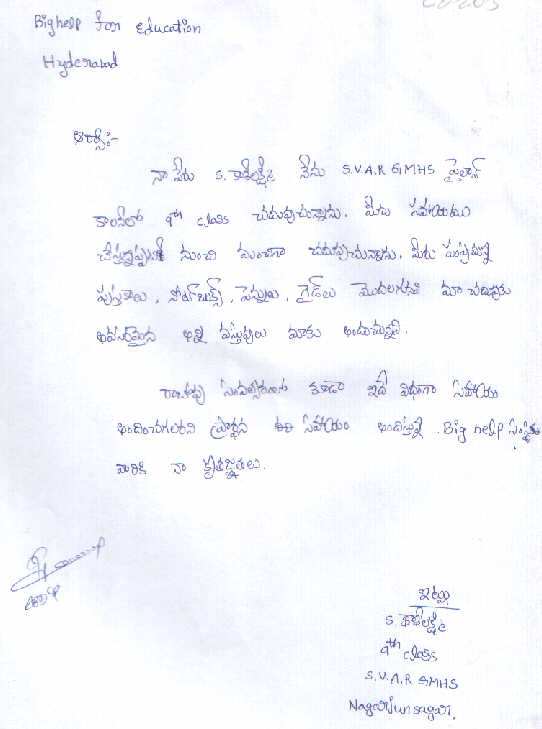 Bighelp for Education
Hyderabad
నా పేరు S. కాశీలక్ష్మి నేను S.V.A.R GMHS పైలాన్
కాలనీలో 9th class చదువుచున్నాను. మీరు సహాయము
చేస్తున్నప్పటి నుంచి మంచిగా చదువుచున్నాను. మీరు పంపుచున్న
పుస్తకాలు, నోట్‌బుక్స్, పెన్నులు, గైడ్‌లు మొదలగునవి మా చదువుకు
అవసరమైన అన్ని వస్తువులు మాకు అందుచున్నవి.
రాబోవు సంవత్సరమున కూడా ఇదే విధంగా సహాయం
అందించగలరని ప్రార్థన ఈ సహాయం అందిస్తున్న Big help సంస్థకు
వారికి నా కృతజ్ఞతలు.
ఇట్లు
S. కాశీలక్ష్మి
9th class
S.V.A.R GMHS
Nagarjunsagar.